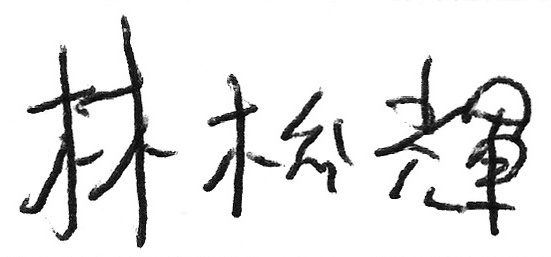 林松輝